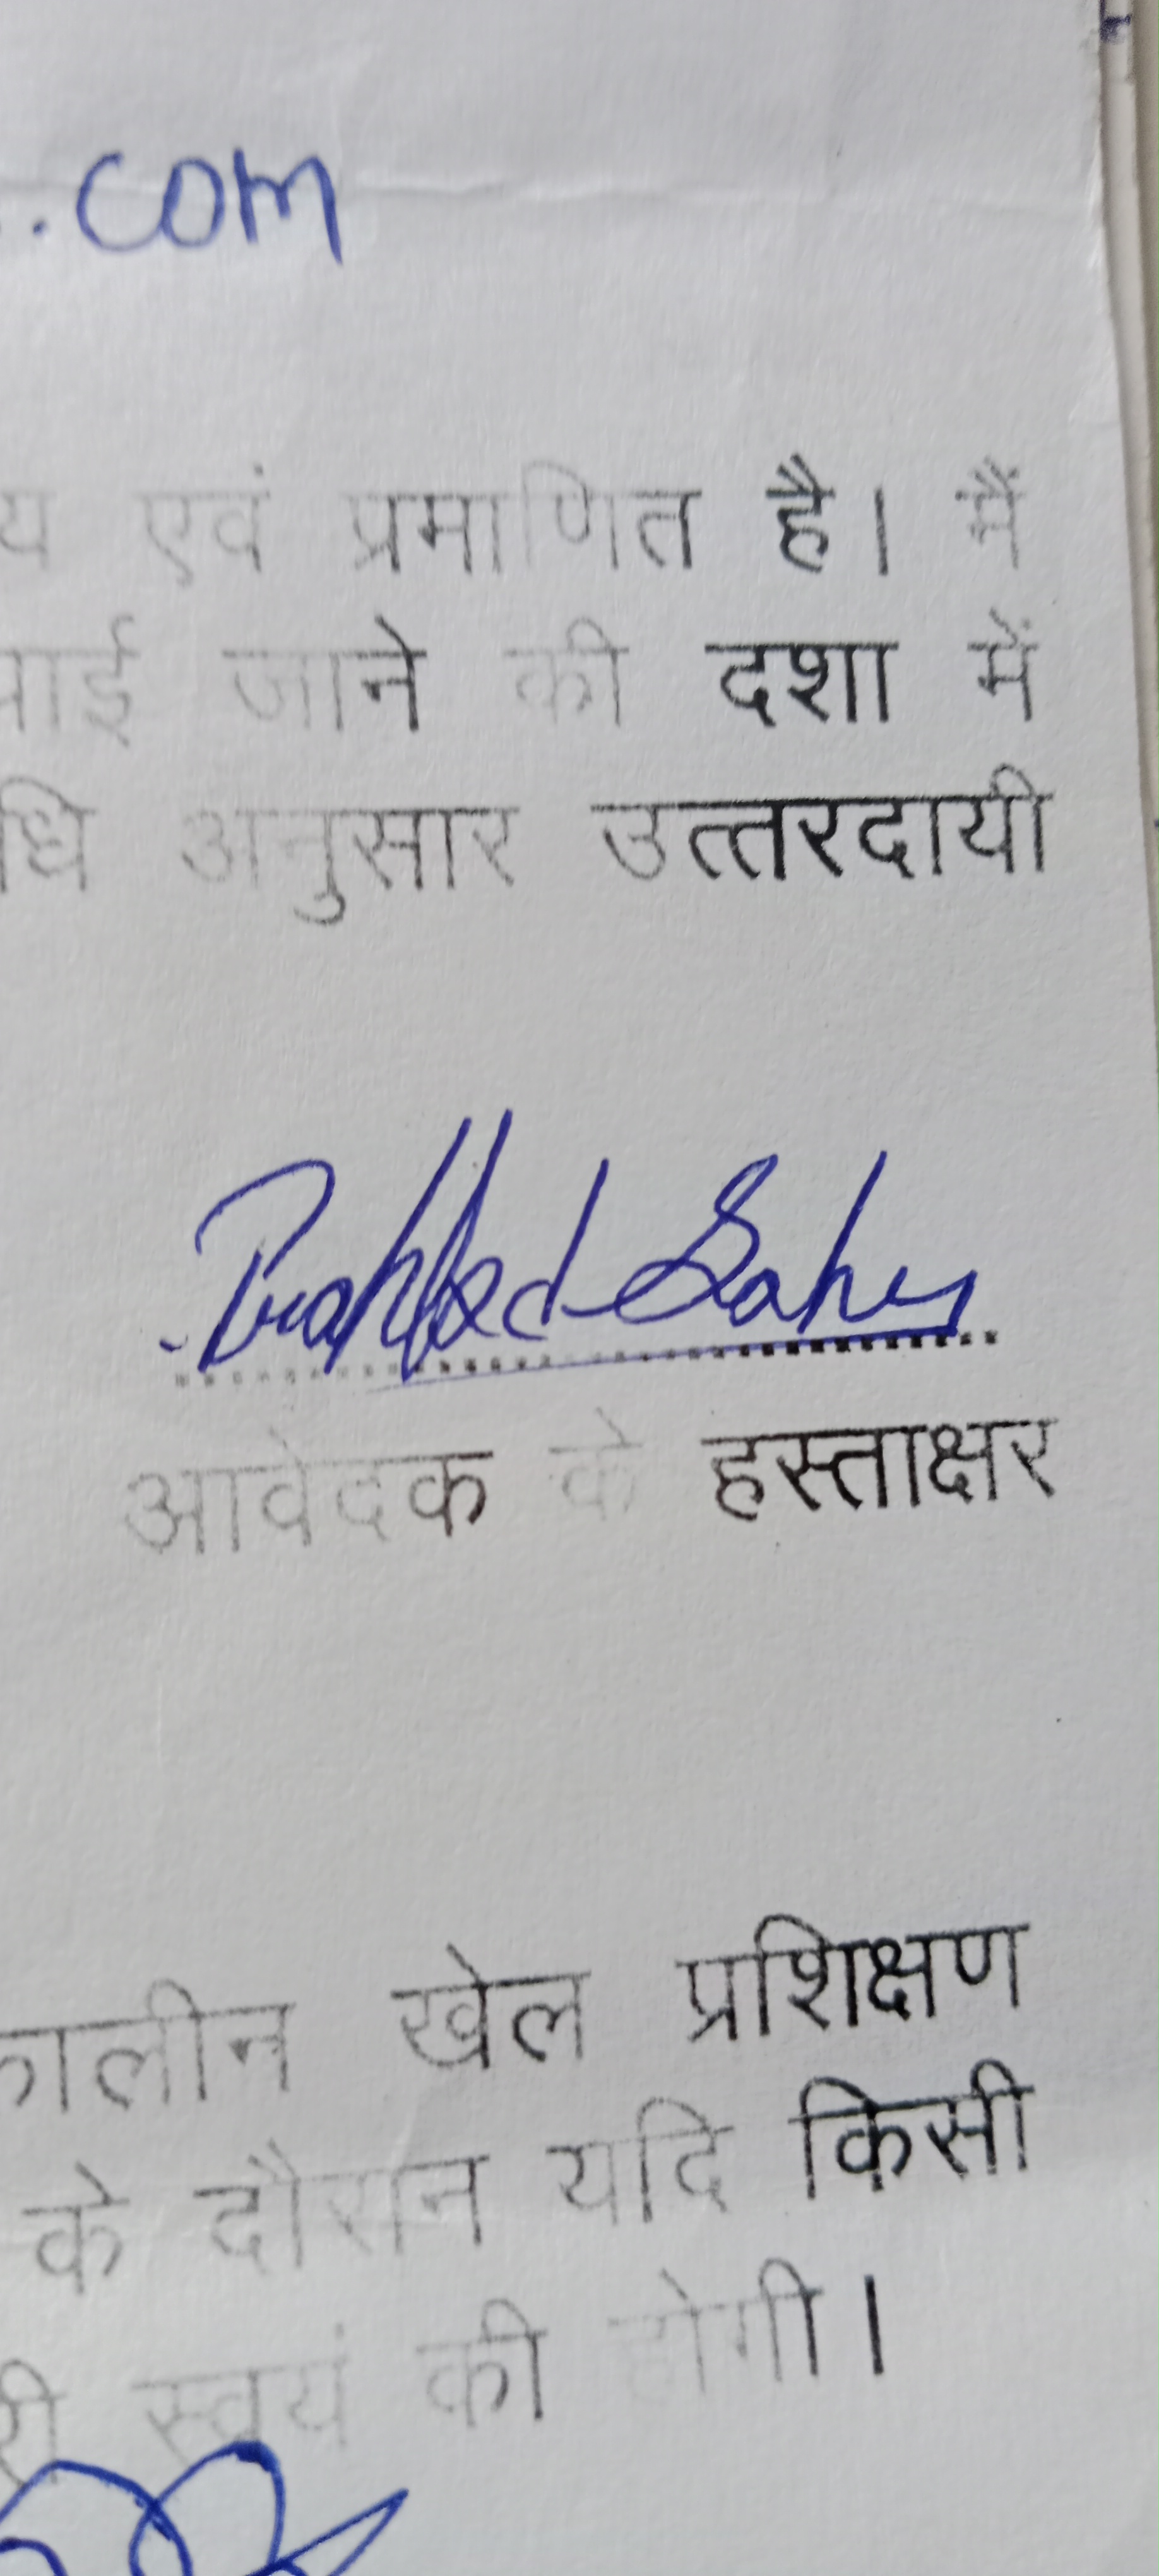 .com
य एवं प्रमाणित है। मैं
पाई जाने की दशा में
धि अनुसार उत्तरदायी
Prahlad Sahu
आवेदक के हस्ताक्षर
कालीन खेल प्रशिक्षण
के दौरान यदि किसी
री स्वयं की होगी।